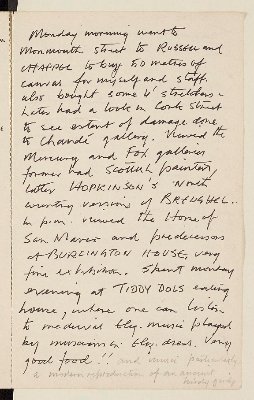 Monday morning went to
Monmouth Street to RUSSELL and
CHAPPLE to buy 50 metres of
canvas for myself and staff.
also bought some V stretchers -
Later had a look in Cork Street
to see extent of damage done
to Chandé gallery. Viewed the
Mercury and Fox galleries
former had Scottish painters,
latter HOPKINSON'S North
country versions of BREUGHEL..
In p.m. viewed the Horse of
San Marco and predecessors
at BURLINGTON HOUSE, very
fine exhibition. Spent monday
evening at TIDDY DOLS eating
house, where one can listen
to medieval Eliz. music played
by musicians in Eliz. dress. Very
good food!! and music particularly
a modern reproduction of an ancient
hurdy gurdy